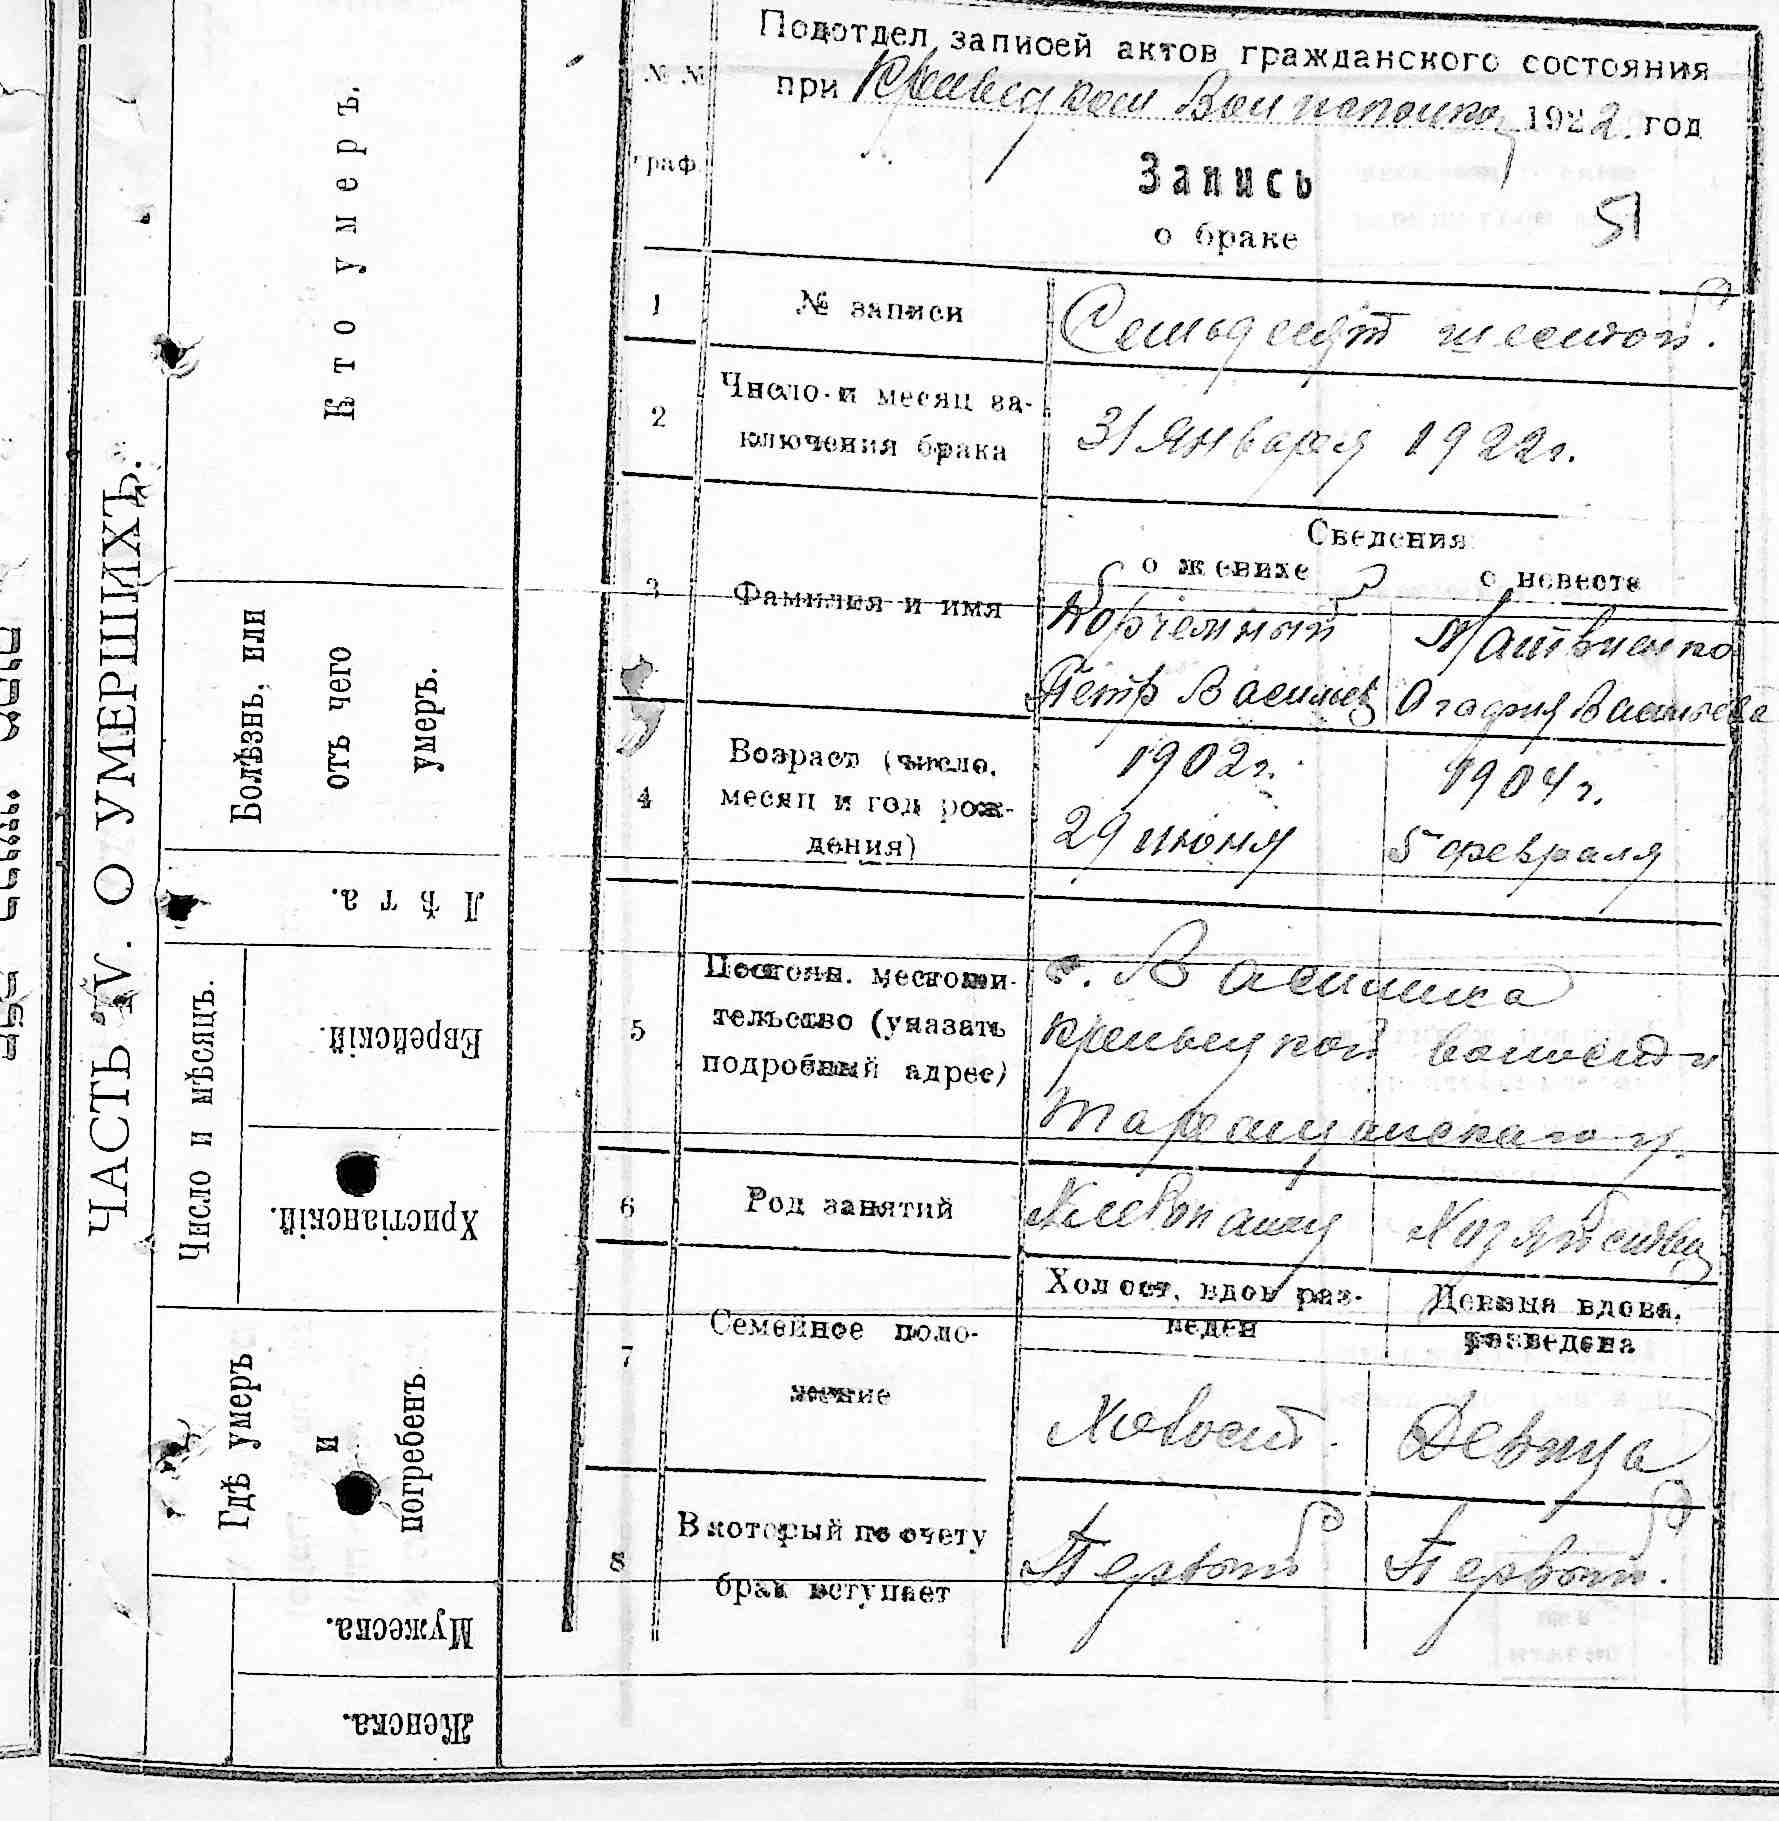 ЧАСТЬ IV. О УМЕРШИХЪ.
Кто умеръ.
Болѣзнь, или
отъ чего
умеръ.
Лѣта.
Число и мѣсяцъ.
Еврейскій.
Христіанскій.
Гдѣ умеръ
и
погребенъ
Мужеска.
Женска.
№ №
граф.
Подотдел записей актов гражданского состояния
при 1922. год
Запись
о браке
51
1 № записи Семьдесят шестой.
2 Число и месяц за-
ключения брака
31 Января 1922 г.
Сведения
о женихе о невесте
3 Фамилия и имя
Корчемный Матвиенко
Петр Васильев Огафия Васильева
4 Возраст (число,
месяц и год рож-
дения)
1902 г. 1904 г.
29 июня 5 февраля
5 Постоян. местожи-
тельство (указать
подробный адрес)
с. Василиха
волости
Таращанского у.
6 Род занятий Хлебопашец Хозяйство
7 Семейное поло-
жение
Холост, вдов раз-
веден
Девица вдова,
розведена
Холост. Девица
8 В который по счету
брак вступает
Первый Первый.